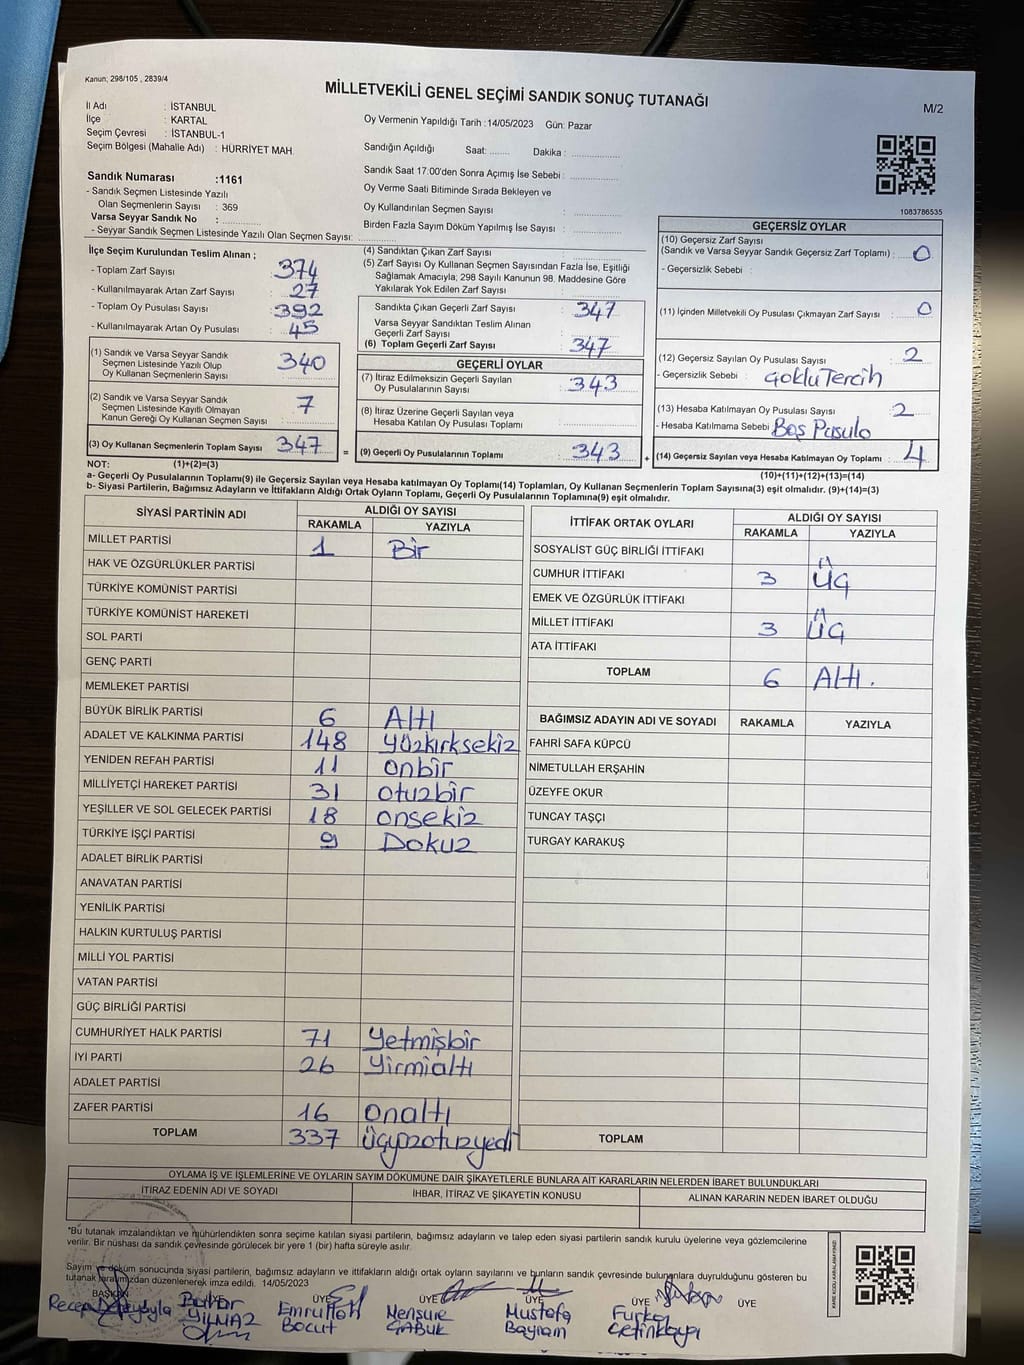 Kanun; 298/105 , 2839/4
MİLLETVEKİLİ GENEL SEÇİMİ SANDIK SONUÇ TUTANAĞI
M/2
İl Adı : İSTANBUL
İlçe : KARTAL
Seçim Çevresi : İSTANBUL-1
Seçim Bölgesi (Mahalle Adı) : HÜRRİYET MAH.
Oy Vermenin Yapıldığı Tarih :14/05/2023 Gün: Pazar
Sandığın Açıldığı Saat: ........ Dakika : ................
Sandık Saat 17.00'den Sonra Açımış İse Sebebi : ................
Oy Verme Saati Bitiminde Sırada Bekleyen ve
Oy Kullandırılan Seçmen Sayısı : ................
Birden Fazla Sayım Döküm Yapılmış İse Sayısı : ................
Sandık Numarası :1161
- Sandık Seçmen Listesinde Yazılı
Olan Seçmenlerin Sayısı : 369
Varsa Seyyar Sandık No : ................
- Seyyar Sandık Seçmen Listesinde Yazılı Olan Seçmen Sayısı: ................
1083786535
İlçe Seçim Kurulundan Teslim Alınan ;
- Toplam Zarf Sayısı : 374
- Kullanılmayarak Artan Zarf Sayısı : 27
- Toplam Oy Pusulası Sayısı : 392
- Kullanılmayarak Artan Oy Pusulası : 45
(1) Sandık ve Varsa Seyyar Sandık
Seçmen Listesinde Yazılı Olup
Oy Kullanan Seçmenlerin Sayısı : 340
(2) Sandık ve Varsa Seyyar Sandık
Seçmen Listesinde Kayıtlı Olmayan
Kanun Gereği Oy Kullanan Seçmen Sayısı : 7
(3) Oy Kullanan Seçmenlerin Toplam Sayısı : 347 =
(4) Sandıktan Çıkan Zarf Sayısı : ................
(5) Zarf Sayısı Oy Kullanan Seçmen Sayısından Fazla İse, Eşitliği
Sağlamak Amacıyla; 298 Sayılı Kanunun 98. Maddesine Göre
Yakılarak Yok Edilen Zarf Sayısı : ................
Sandıkta Çıkan Geçerli Zarf Sayısı : 347
Varsa Seyyar Sandıktan Teslim Alınan
Geçerli Zarf Sayısı : ................
(6) Toplam Geçerli Zarf Sayısı : 347
GEÇERLİ OYLAR
(7) İtiraz Edilmeksizin Geçerli Sayılan
Oy Pusulalarının Sayısı : 343
(8) İtiraz Üzerine Geçerli Sayılan veya
Hesaba Katılan Oy Pusulası Toplamı : ................
(9) Geçerli Oy Pusulalarının Toplamı : 343 +
GEÇERSİZ OYLAR
(10) Geçersiz Zarf Sayısı
(Sandık ve Varsa Seyyar Sandık Geçersiz Zarf Toplamı) : 0
- Geçersizlik Sebebi :
(11) İçinden Milletvekili Oy Pusulası Çıkmayan Zarf Sayısı : 0
(12) Geçersiz Sayılan Oy Pusulası Sayısı : 2
- Geçersizlik Sebebi : çoklu Tercih
(13) Hesaba Katılmayan Oy Pusulası Sayısı : 2
- Hesaba Katılmama Sebebi : Boş Pusula
(14) Geçersiz Sayılan veya Hesaba Katılmayan Oy Toplamı : 4
NOT: (1)+(2)=(3)
(10)+(11)+(12)+(13)=(14)
a- Geçerli Oy Pusulalarının Toplamı(9) ile Geçersiz Sayılan veya Hesaba katılmayan Oy Toplamı(14) Toplamları, Oy Kullanan Seçmenlerin Toplam Sayısına(3) eşit olmalıdır. (9)+(14)=(3)
b- Siyasi Partilerin, Bağımsız Adayların ve İttifakların Aldığı Ortak Oyların Toplamı, Geçerli Oy Pusulalarının Toplamına(9) eşit olmalıdır.
SİYASİ PARTİNİN ADI ALDIĞI OY SAYISI
RAKAMLA YAZIYLA
MİLLET PARTİSİ 1 Bir
HAK VE ÖZGÜRLÜKLER PARTİSİ
TÜRKİYE KOMÜNİST PARTİSİ
TÜRKİYE KOMÜNİST HAREKETİ
SOL PARTİ
GENÇ PARTİ
MEMLEKET PARTİSİ
BÜYÜK BİRLİK PARTİSİ 6 Altı
ADALET VE KALKINMA PARTİSİ 148 yüzkırksekiz
YENİDEN REFAH PARTİSİ 11 onbir
MİLLİYETÇİ HAREKET PARTİSİ 31 otuzbir
YEŞİLLER VE SOL GELECEK PARTİSİ 18 onsekiz
TÜRKİYE İŞÇİ PARTİSİ 9 Dokuz
ADALET BİRLİK PARTİSİ
ANAVATAN PARTİSİ
YENİLİK PARTİSİ
HALKIN KURTULUŞ PARTİSİ
MİLLİ YOL PARTİSİ
VATAN PARTİSİ
GÜÇ BİRLİĞİ PARTİSİ
CUMHURİYET HALK PARTİSİ 71 yetmişbir
İYİ PARTİ 26 yirmialtı
ADALET PARTİSİ
ZAFER PARTİSİ 16 onaltı
TOPLAM 337 üçyüzotuzyedi
İTTİFAK ORTAK OYLARI ALDIĞI OY SAYISI
RAKAMLA YAZIYLA
SOSYALİST GÜÇ BİRLİĞİ İTTİFAKI
CUMHUR İTTİFAKI 3 üç
EMEK VE ÖZGÜRLÜK İTTİFAKI
MİLLET İTTİFAKI 3 üç
ATA İTTİFAKI
TOPLAM 6 Altı.
BAĞIMSIZ ADAYIN ADI VE SOYADI RAKAMLA YAZIYLA
FAHRİ SAFA KÜPCÜ
NİMETULLAH ERŞAHİN
ÜZEYFE OKUR
TUNCAY TAŞÇI
TURGAY KARAKUŞ
TOPLAM
OYLAMA İŞ VE İŞLEMLERİNE VE OYLARIN SAYIM DÖKÜMÜNE DAİR ŞİKAYETLERLE BUNLARA AİT KARARLARIN NELERDEN İBARET BULUNDUKLARI
İTİRAZ EDENİN ADI VE SOYADI İHBAR, İTİRAZ VE ŞİKAYETİN KONUSU ALINAN KARARIN NEDEN İBARET OLDUĞU
*Bu tutanak imzalandıktan ve mühürlendikten sonra seçime katılan siyasi partilerin, bağımsız adayların ve talep eden siyasi partilerin sandık kurulu üyelerine veya gözlemcilerine
verilir. Bir nüshası da sandık çevresinde görülecek bir yere 1 (bir) hafta süreyle asılır.
Sayım ve döküm sonucunda siyasi partilerin, bağımsız adayların ve ittifakların aldığı ortak oyların sayılarını ve bunların sandık çevresinde bulunanlara duyrulduğunu gösteren bu
tutanak tarafımızdan düzenlenerek imza edildi. 14/05/2023
BAŞKAN ÜYE ÜYE ÜYE ÜYE ÜYE ÜYE
Recep YILMAZ Emrullah Bocut Mensure ÇABUK Mustafa Bayram Furkan Çetinkaya